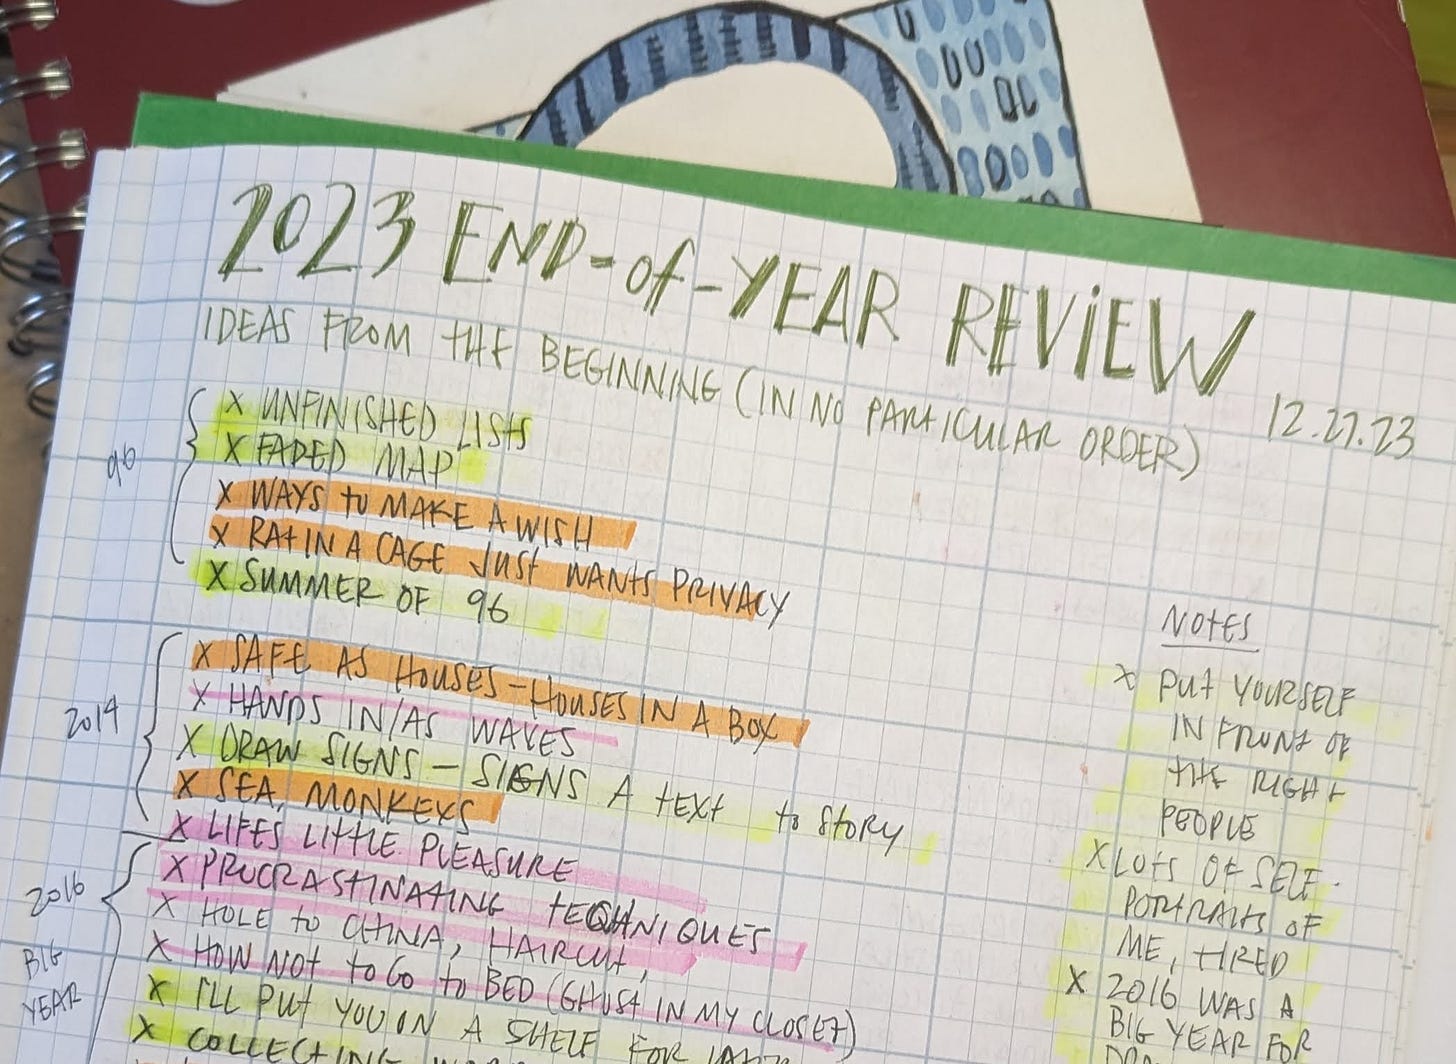 2023 END-of-YEAR REVIEW
IDEAS FROM tHE BEGINNING (IN NO PARTICULAR ORDER)
12.27.23
96
X UNFINISHED LIStS
X FADED MAP
X WAYS to MAKE A WISH
X RAt IN A CAGE JUSt WANtS PRIVACY
X SUMMER OF 96
2014
X SAFE AS HOUSES - HOUSES IN A BOX
X HANDS IN/AS WAVES
X DRAW SIGNS - SIGNS A tEXt to StORY
X SEA MONKEYS
X LIFES LIttLE PLEASURE
2016
BIG
YEAR
X PROCRAStINAtING tECHNIQUES
X HOLE to CHINA, HAIRCUt,
X HOW NOt to Go to BED (GHOSt IN MY CLOSEt)
X I'LL PUt YOU ON A SHELF FOR LATER
X COLLECtING
NOtES
X PUt YOURSELF
IN FRONt OF
tHE RIGHt
PEOPLE
X LOtS OF SELF-
PORtRAItS OF
ME, tIRED
X 2016 WAS A
BIG YEAR FOR